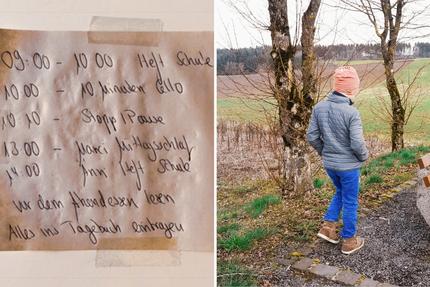 09:00 - 10 00 Heft Schule
10 00 - 10 Minuten
10 10 - Stopp Pause
13.00 - Mittagschlaf
14.00 Ann Heft Schule
vor dem lesen
Alles ins Tagebuch eintragen